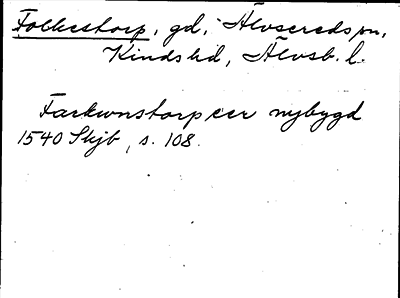 Folkestorp, gd, Älvsereds sn,
Kinds hd, Älvsb. l.
Farkunstorp eer nybygd
1540 Skjb, s. 108.